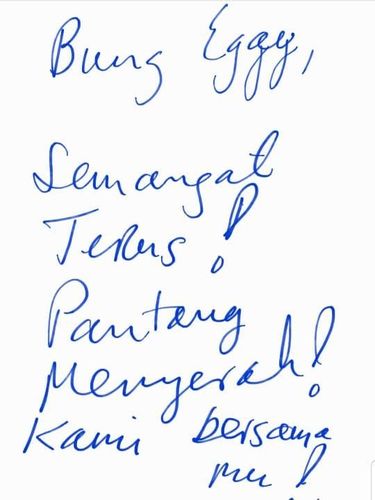 Bung Eggy,
Semangat
Terus!
Pantang
Menyerah!
Kami bersama
mu!